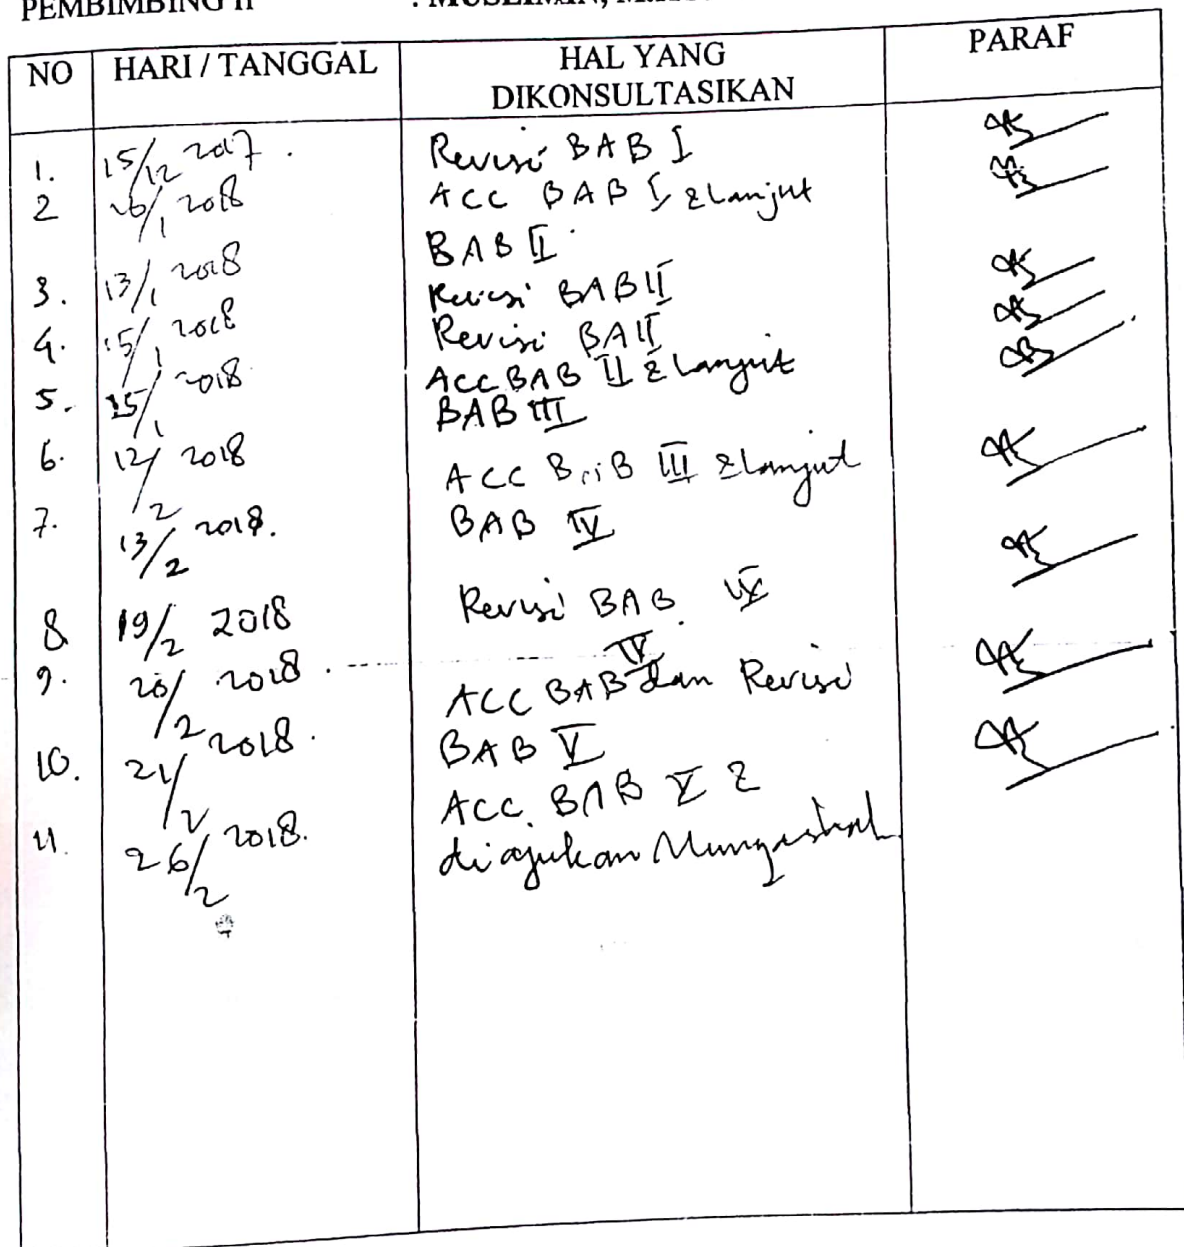 PEMBIMBING II : MUSLIMIN,
NO HARI / TANGGAL HAL YANG DIKONSULTASIKAN PARAF
1. 15/12 2017. Revisi BAB I
2 26/1 2018 ACC BAB I & lanjut
BAB II.
3. 13/1 2018 Revisi BAB II
4. 15/1 2018 Revisi BA II
5. 15/1 2018 ACC BAB II & lanjut
BAB III
6. 12/2 2018 ACC BAB III & lanjut
7. 13/2 2018. BAB IV
8 19/2 2018 Revisi BAB IV
9. 20/2 2018. ACC BAB IV dan Revisi
10. 21/2 2018. BAB V
ACC BAB V &
11. 26/2 2018. diajukan